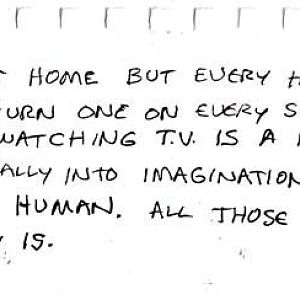 HOME BUT EVERY
URN ONE ON EVERY S
WATCHING T.V. IS A
ALLY INTO IMAGINATION
HUMAN. ALL THOSE
IS.